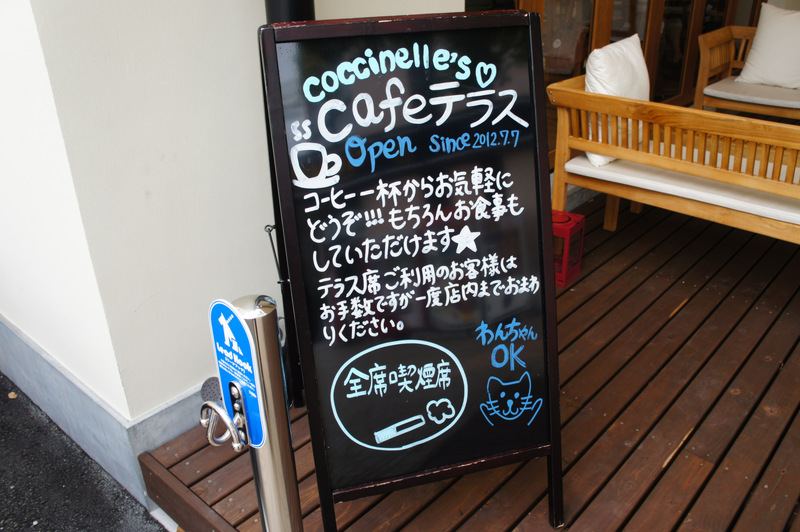 coccinelle's♡
Cafeテラス
Open since 2012.7.7
コーヒー一杯からお気軽に
どうぞ!!! もちろんお食事も
していただけます★
テラス席ご利用のお客様は
お手数ですが一度店内までおまわ
りください。
わんちゃん
OK
全席喫煙席
Lead Hook